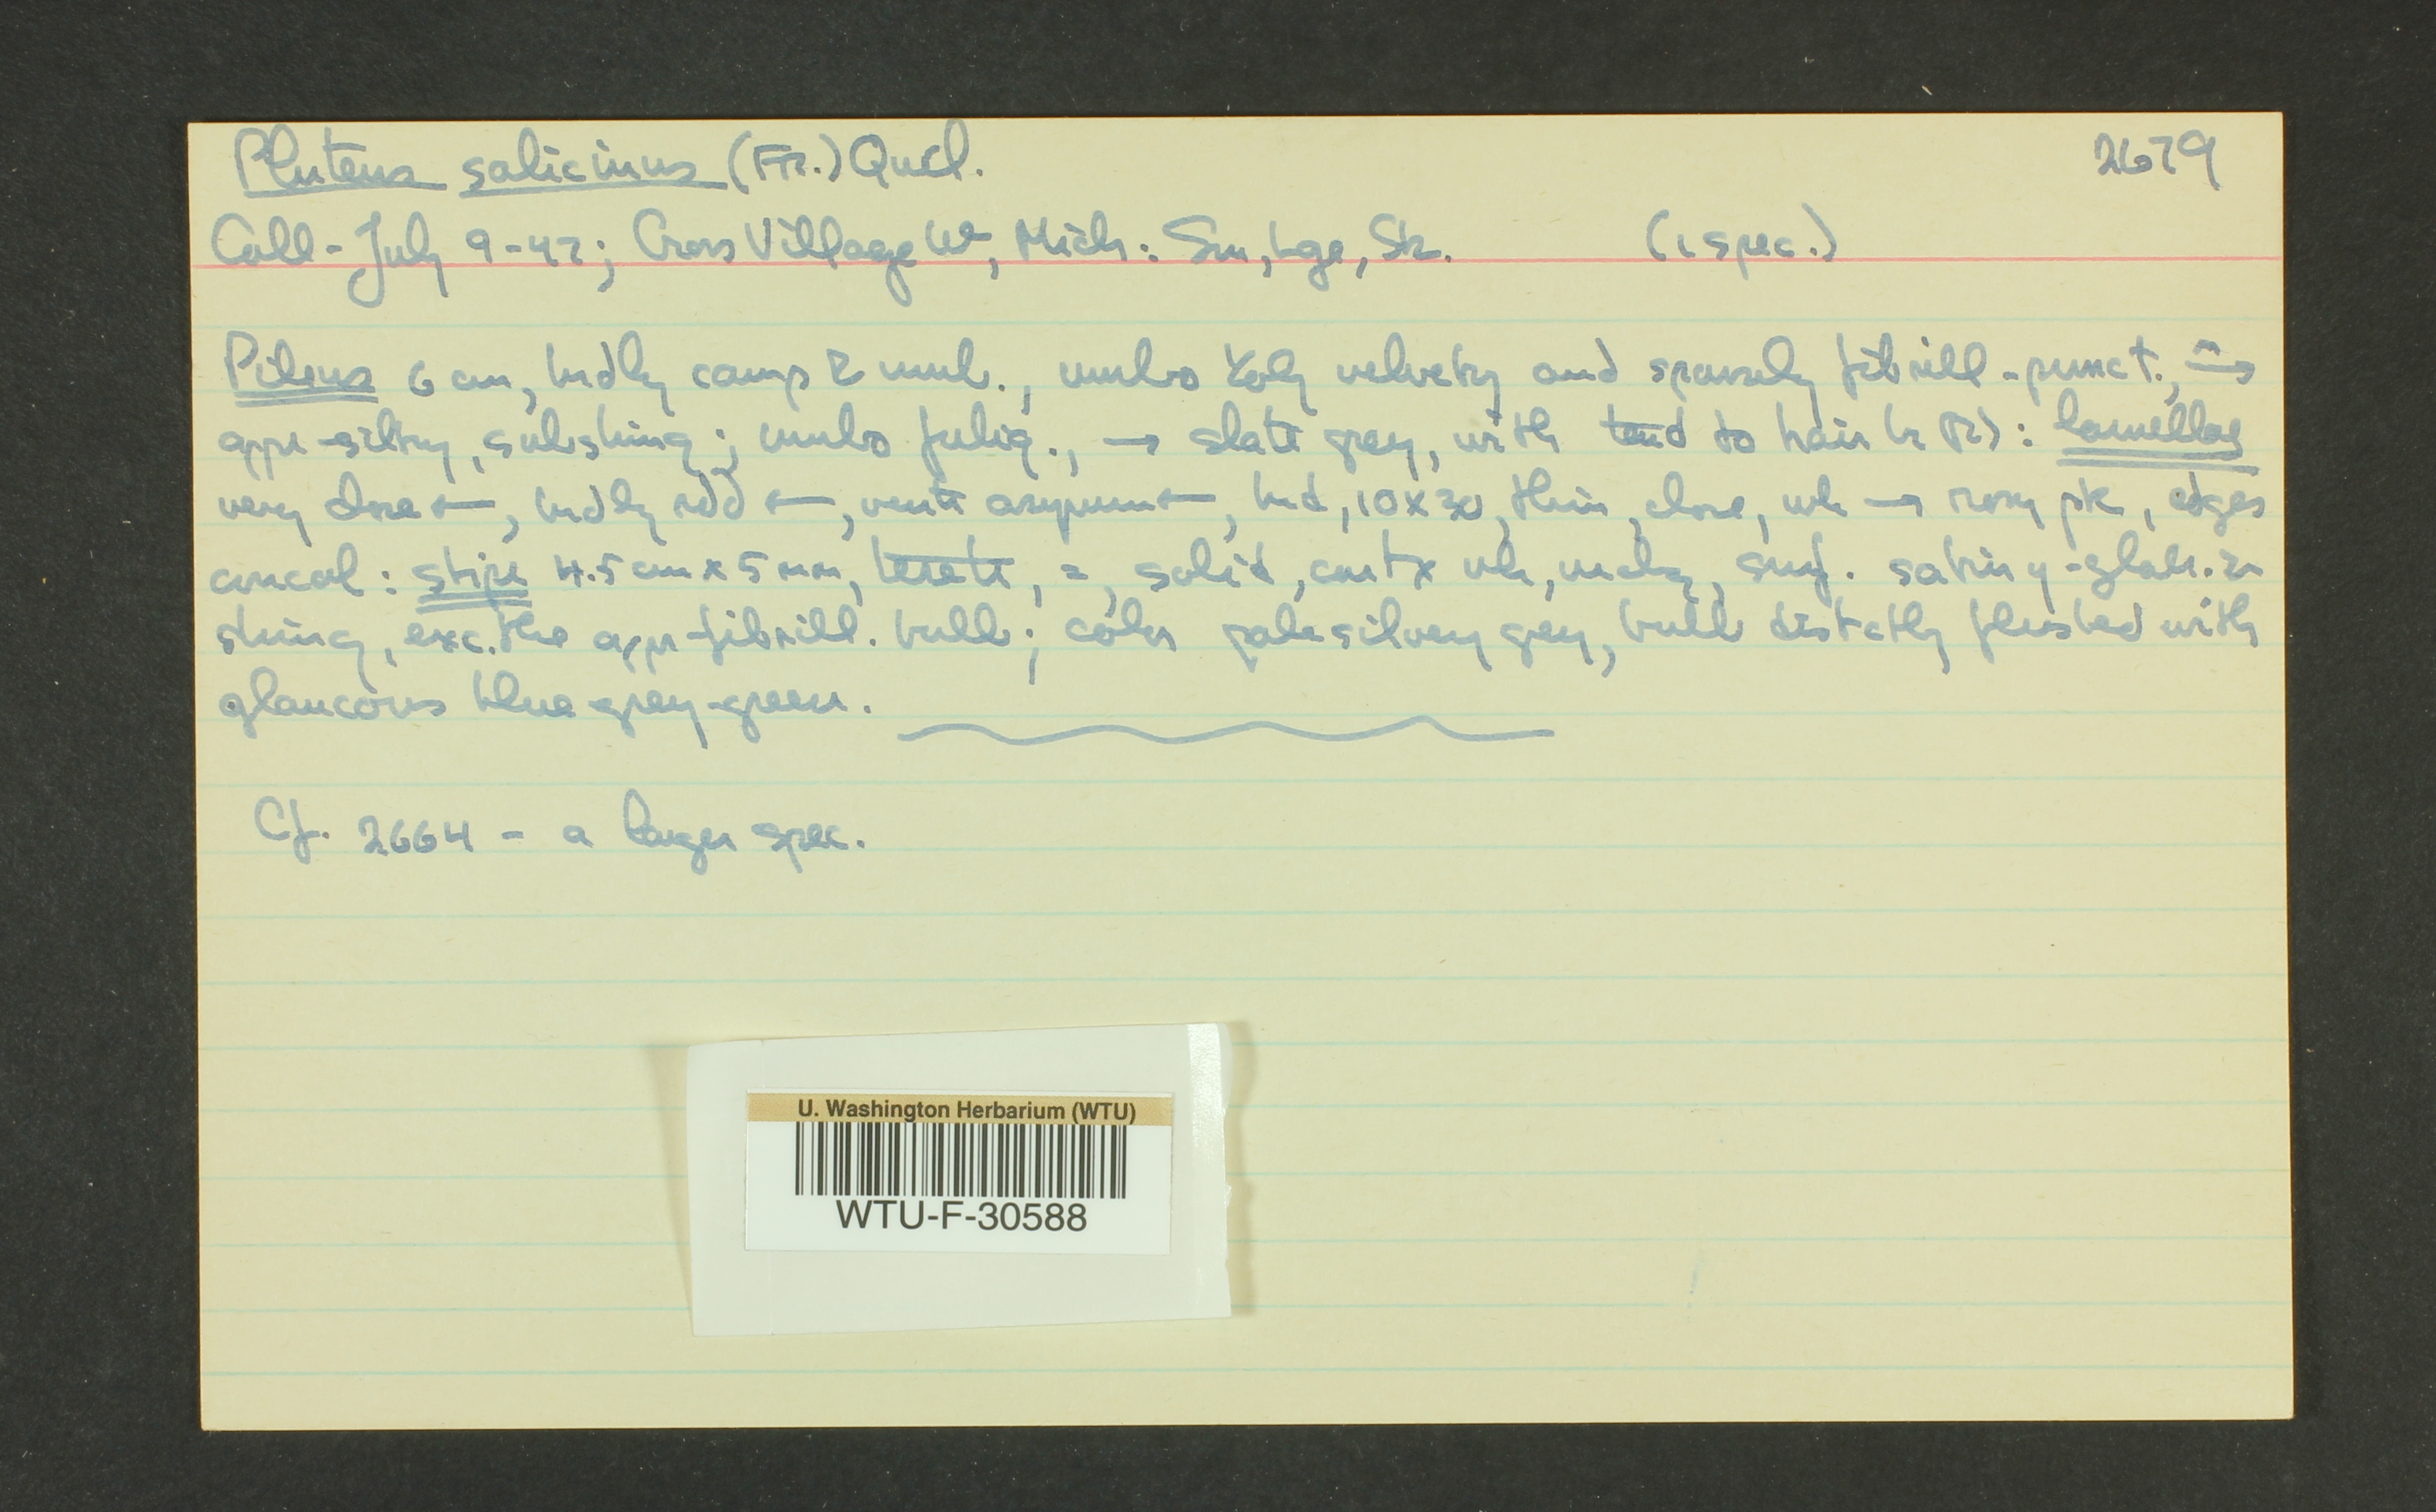 Pluteus salicinus (Fr.) Quél. 2679
Coll - July 9-47; Cross Village W, Mich: Sm, Lge, Sk. (1 spec.)
Pileus 6 cm, brdly camp umb., umbo velvety and sparsely fibrill-punct., →
appr-silky, subshing; umbo fulig., → slate grey, with tend to hair: lamellae
very close ←, brdly rdd ←, brd, 10 x 30, thin, close, wh → rosy pk, edges
concol: stipe 4.5 cm x 5 mm, terete, =, solid, cortx wh, surf. satiny-glab. &
shing, exc. the appr-fibrill. bulb; color pale silvery grey, bulb distctly flushed with
glaucous blue-grey-green.
Cf. 2664 - a larger spec.
U. Washington Herbarium (WTU)
WTU-F-30588